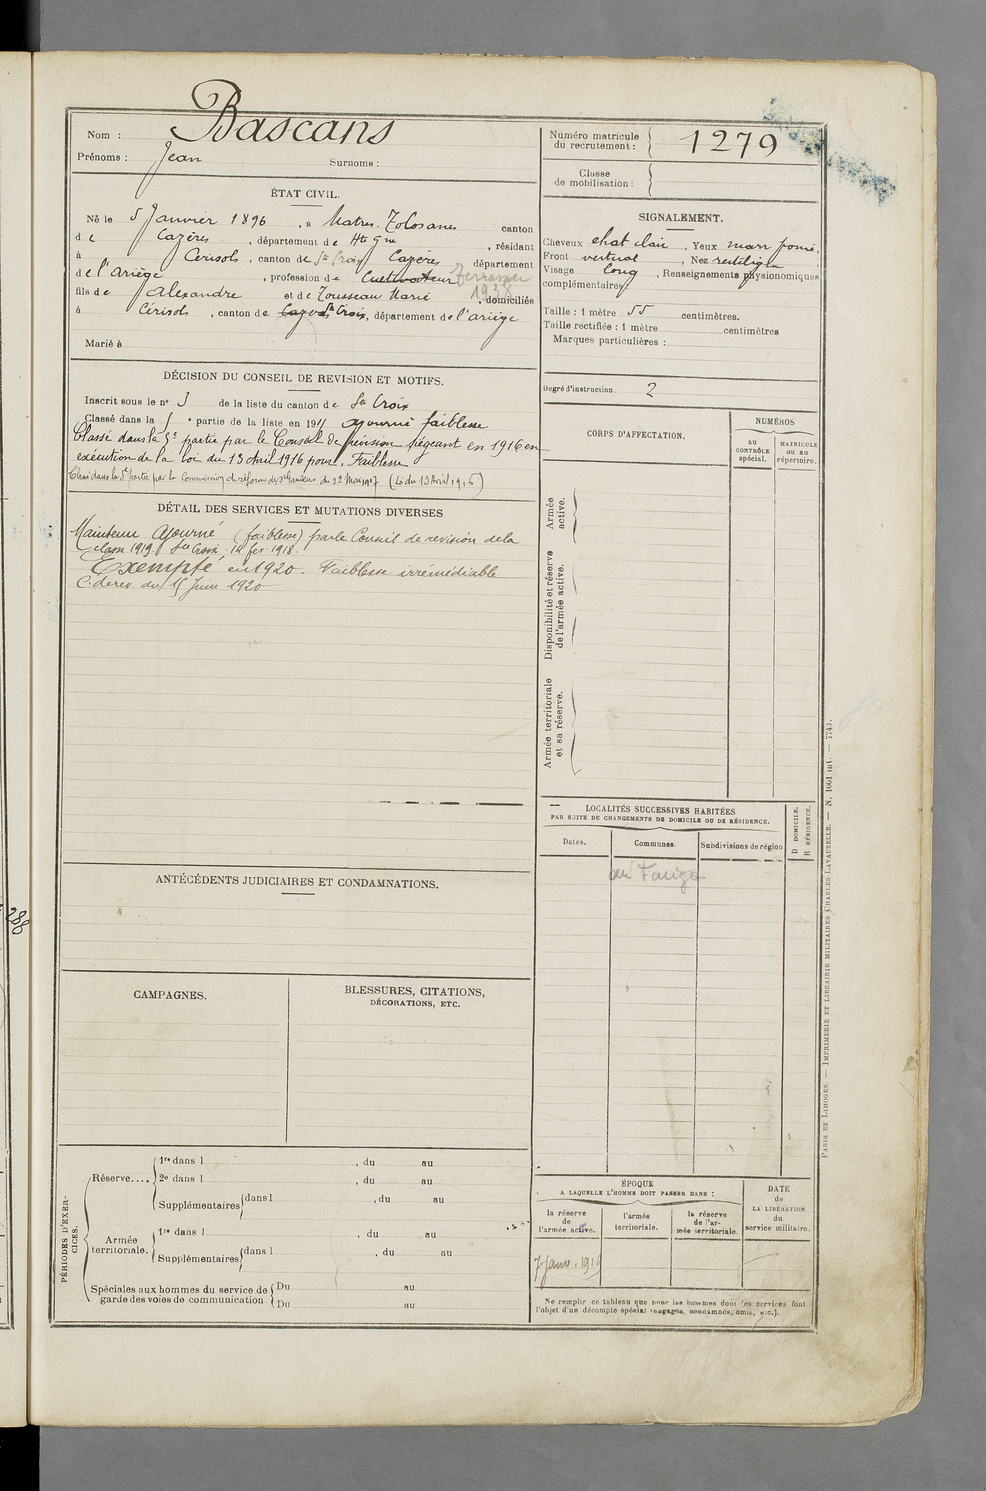 Nom : Bascans
Prénoms : Jean Surnoms :
Numéro matricule du recrutement : 1279
Classe de mobilisation :
ÉTAT CIVIL.
Né le 5 Janvier 1896, à Martres-Tolosanes canton
de Cazères, département de Hte Gne, résidant
à Cérisols, canton de Ste Croix Cazères département
de l'Ariège, profession de Cultivateur Terrassier
1938
fils de Alexandre et de Tousseau Marie, domiciliés
à Cérisols, canton de Cazères Ste Croix, département de l'ariège
Marié à
SIGNALEMENT.
Cheveux chat clair, Yeux marr foncé,
Front vertical, Nez rectiligne
Visage long, Renseignements physionomiques
complémentaires :
Taille : 1 mètre 55 centimètres.
Taille rectifiée : 1 mètre centimètres
Marques particulières :
Degré d'instruction. 2
DÉCISION DU CONSEIL DE REVISION ET MOTIFS.
Inscrit sous le no 3 de la liste du canton de Ste Croix
Classé dans la partie de la liste en 191 ajourné faiblesse
Classé dans la 5e partie par le Conseil de révision siégeant en 1916 en
exécution de la loi du 13 Avril 1916 pour, Faiblesse
Classé dans la 5e partie par la Commission de réforme de St Gaudens du 22 Mai 1917 (Loi du 13 Avril 1916)
DÉTAIL DES SERVICES ET MUTATIONS DIVERSES
Maintenu Ajourné (faiblesse) par le Conseil de revision de la
classe 1919. Ste Croix. 14 fev. 1918.
Exempté en 1920. Faiblesse irrémédiable
C. de rev. du 15 Juin 1920
CORPS D'AFFECTATION.
NUMÉROS
au CONTRÔLE spécial.
MATRICULE ou au répertoire.
Armée active.
Disponibilité et réserve de l'armée active.
Armée territoriale et sa réserve.
LOCALITÉS SUCCESSIVES HABITÉES
PAR SUITE DE CHANGEMENTS DE DOMICILE OU DE RÉSIDENCE.
Dates.
Communes.
Subdivisions de région
D DOMICILE.
R RÉSIDENCE.
au Fauga
ANTÉCÉDENTS JUDICIAIRES ET CONDAMNATIONS.
288
CAMPAGNES.
BLESSURES, CITATIONS,
DÉCORATIONS, ETC.
PÉRIODES D'EXERCICES.
Réserve....
1re dans l , du au
2e dans l , du au
Supplémentaires dans l , du au
Armée territoriale.
1re dans l , du au
Supplémentaires dans l , du au
Spéciales aux hommes du service de garde des voies de communication.
Du au
Du au
ÉPOQUE
A LAQUELLE L'HOMME DOIT PASSER DANS :
la réserve de l'armée active.
l'armée territoriale.
la réserve de l'armée territoriale.
DATE de LA LIBÉRATION du service militaire.
7 janv. 1919
Ne remplir ce tableau que pour les hommes dont les services font
l'objet d'un décompte spécial (engagés, condamnés, omis, etc.).
PARIS ET LIMOGES. — IMPRIMERIE ET LIBRAIRIE MILITAIRES CHARLES-LAVAUZELLE. — N. 1001 int. — 7743.